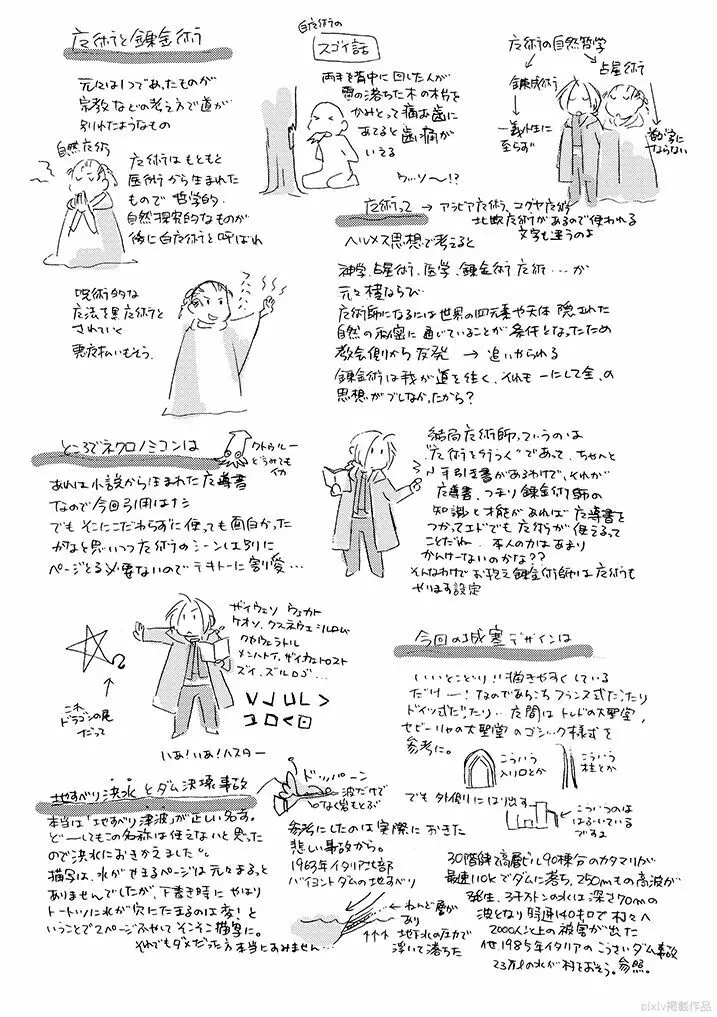 魔術と錬金術
元々は1つであったものが
宗教などの考え方で道が
別れたようなもの
自然魔術
魔術はもともと
医術から生まれた
もので哲学的、
自然探究的なものが
後に白魔術と呼ばれ
呪術的な
魔法を黒魔術と
されていく
悪魔払いもそう。
白魔術の
スゴイ話
両手を背中に回した人が
雷の落ちた木の木片を
かみとって痛む歯に
あてると歯痛が
いえる
ウッソ〜!?
魔術の自然哲学
錬成術
占星術
一義性に
至らず
魔術って
→ アラビア魔術、コグヤ魔術
北欧魔術があるので使われる
文字も違うのよ
ヘルメス思想で考えると
神学、占星術、医学、錬金術 魔術…が
元々横ならび
魔術師になるには世界の四元素や天体 隠された
自然の秘密に通じていることが条件となったため
教会側から反発 → 追いやられる
錬金術は我が道を往く、それも一にして全、の
思想がブレなかったから?
ところでネクロノミコンは
クトゥルー
どうみても
イカ
あれは小説からうまれた魔導書
なので今回引用はナシ
でもそこにこだわらずに使っても面白かった
かなと思いつつ魔術のシーンは別に
ページとる必要ないのでテキトーに割愛…
結局魔術師っていうのは
"魔術を行うぐ"であって、ちゃんと
手引き書があるわけで、それが
魔導書、つまり錬金術師の
知識と才能があれば魔導書を
つかってエドでも魔術が使えるって
ことだねー 本人の力はあまり
かんけーないのかな??
そんなわけでお抱え錬金術師は魔術も
やります設定
これ
ドラゴンの尾
だって
ザイウェソ ウェカト
ケオソ、クスネウェ=ルロム
クセウェラトル
メンハトイ、ザイウェトロスト
ズイ、ズルロゴ…
いあ!いあ!ハスター
今回の城塞デザインは
いいとこどり!!描きやすくしている
だけー!なのであちこちフランス式だったり
ドイツ式だったり…広間はトレドの大聖堂,
セビーリャの大聖堂のゴシック様式を
参考に。
こういう
入り口とか
こういう
柱とか
でも外側にはり出す
←こういうのは
はぶいている
ですよ
地すべり洪水とダム決壊事故
本当は「地すべり津波」が正しい名す。
どーしてもこの名称は使えないと思った
ので洪水におきかえました。
描写は、水がせまるページは元々まるっと
ありませんでしたが、下書き時にやはり
トートツに水が穴にたまるのは変!と
いうことで2ページふやしてそこそこ描写に。
それでもダメだった方本当にすみません…
ドッパーン
波だけで
なく岩もとぶ
参考にしたのは実際におきた
悲しい事故から。
1963年イタリア北部
バイヨントダムの地すべり
ねんど層が
あり
地下水の圧力で
浮いて落ちた
30階建て高層ビル90棟分のカタマリが
最速110kでダムに落ち、250mもの高波が
発生、3千万トンの水は深さ70mの
波となり時速140キロで村々へ
2000人以上の被害が出た
他1985年イタリアのこうさいダム事故
23万tの水が村をおそう。参照。
pixiv掲載作品